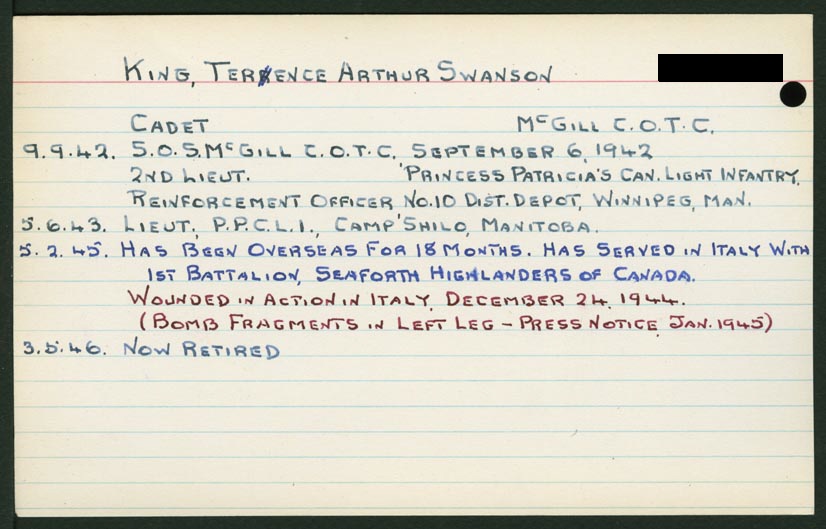 KING, TERRENCE ARTHUR SWANSON
CADET McGILL C.O.T.C.
9.9.42. S.O.S. McGILL C.O.T.C., SEPTEMBER 6, 1942
2ND LIEUT. 'PRINCESS PATRICIA'S CAN. LIGHT INFANTRY,
REINFORCEMENT OFFICER NO.10 DIST. DEPOT, WINNIPEG, MAN.
5.6.43. LIEUT, P.P.C.L.I., CAMP 'SHILO, MANITOBA.
5.2.45. HAS BEEN OVERSEAS FOR 18 MONTHS. HAS SERVED IN ITALY WITH
1ST BATTALION, SEAFORTH HIGHLANDERS OF CANADA.
WOUNDED IN ACTION IN ITALY, DECEMBER 24, 1944.
(BOMB FRAGMENTS IN LEFT LEG - PRESS NOTICE, JAN. 1945)
3.5.46. NOW RETIRED